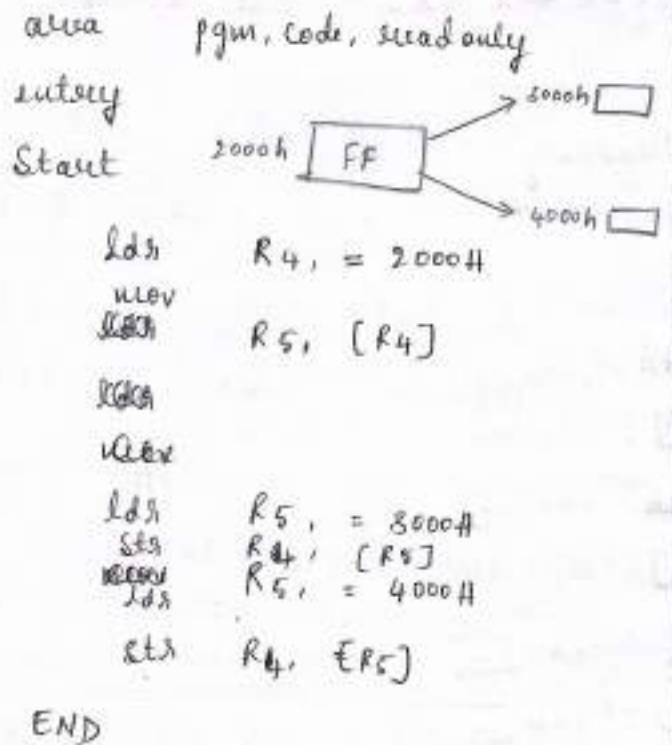 area pgm, code, readonly
entry 3000h
Start 2000h FF
4000h
ldr R4, = 2000H
mov
R5, [R4]
ldr R5, = 3000H
str R4, [R5]
ldr R5, = 4000H
str R4, [R5]
END